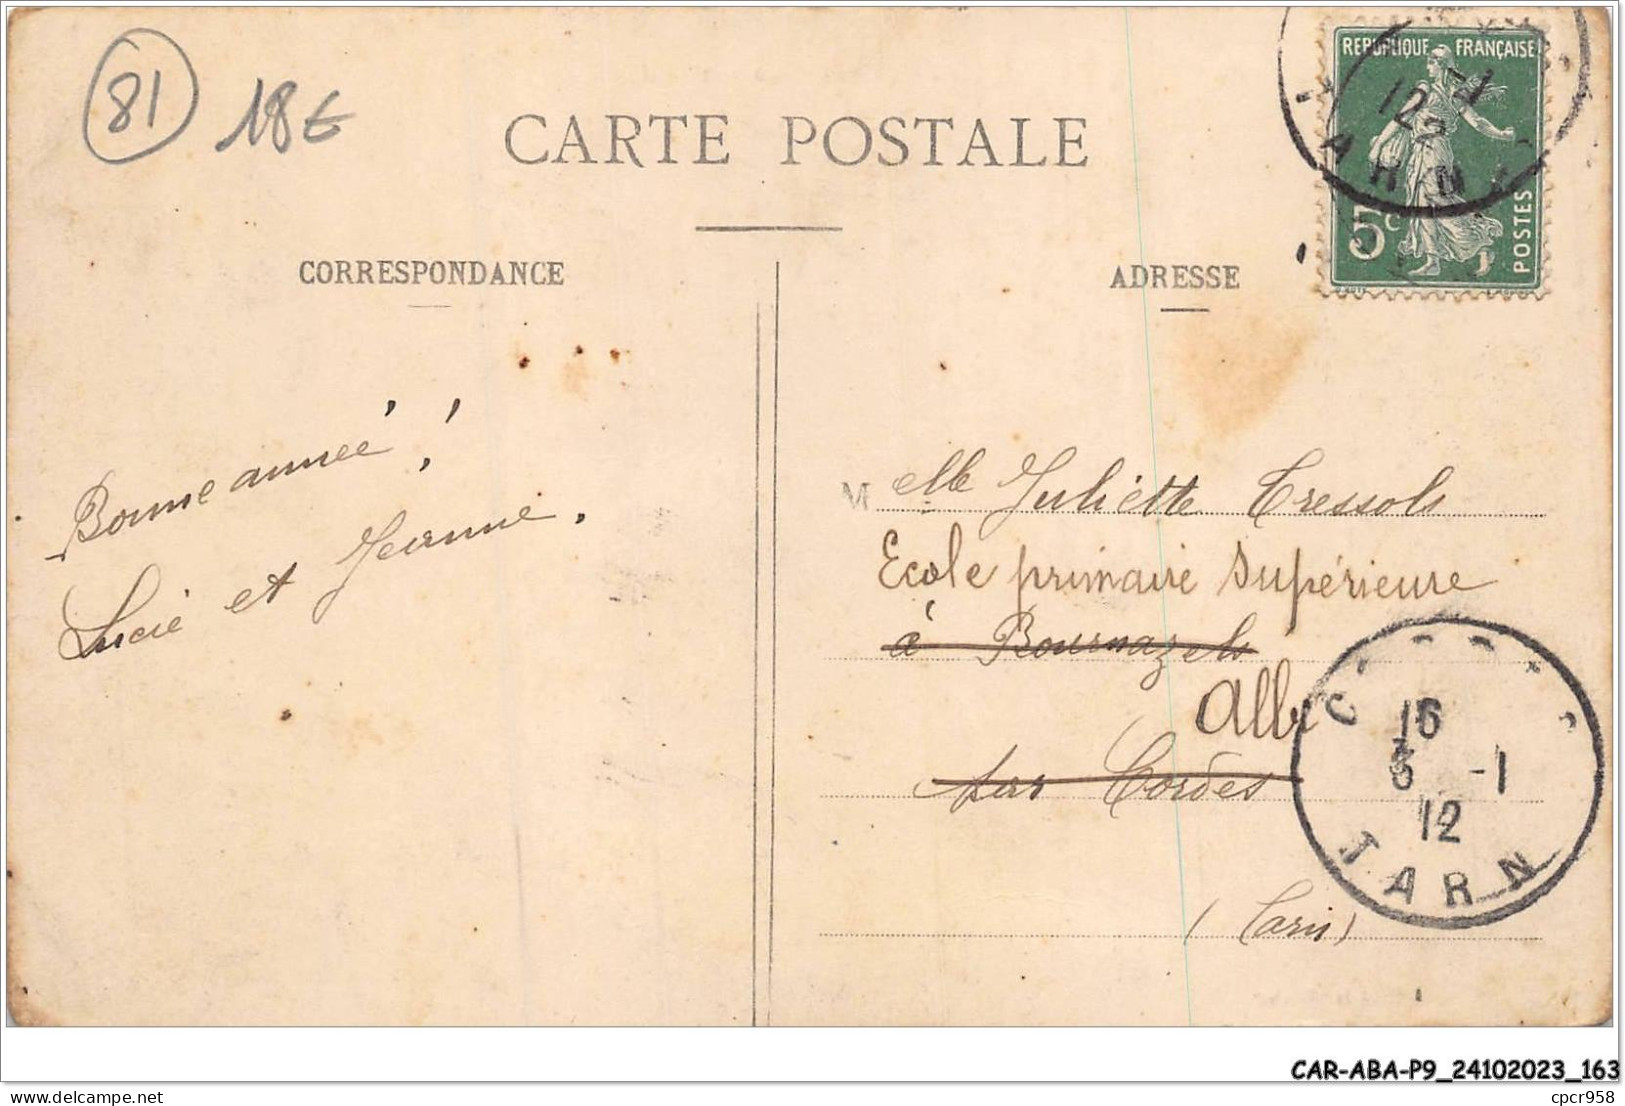 81
18€
CARTE POSTALE
REPUBLIQUE FRANÇAISE
5c
POSTES
12
CORRESPONDANCE
ADRESSE
Bonne année!
Lucie et Jeanne.
Melle Juliette Cressols
Ecole primaire supérieure
à Bournazels
Albi
par Cordes
(Tarn)
C
16
3 -1
12
TARN
CAR-ABA-P9_24102023_163
delcampe.net
cpcr958